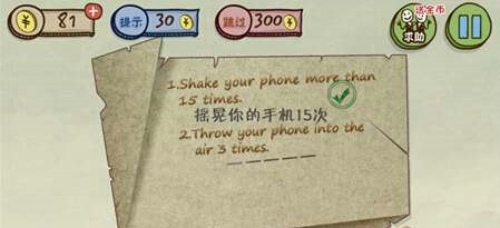 81
提示 30
跳过 300
送金币
求助
1.Shake your phone more than
15 times.
摇晃你的手机15次
2.Throw your phone into the
air 3 times.